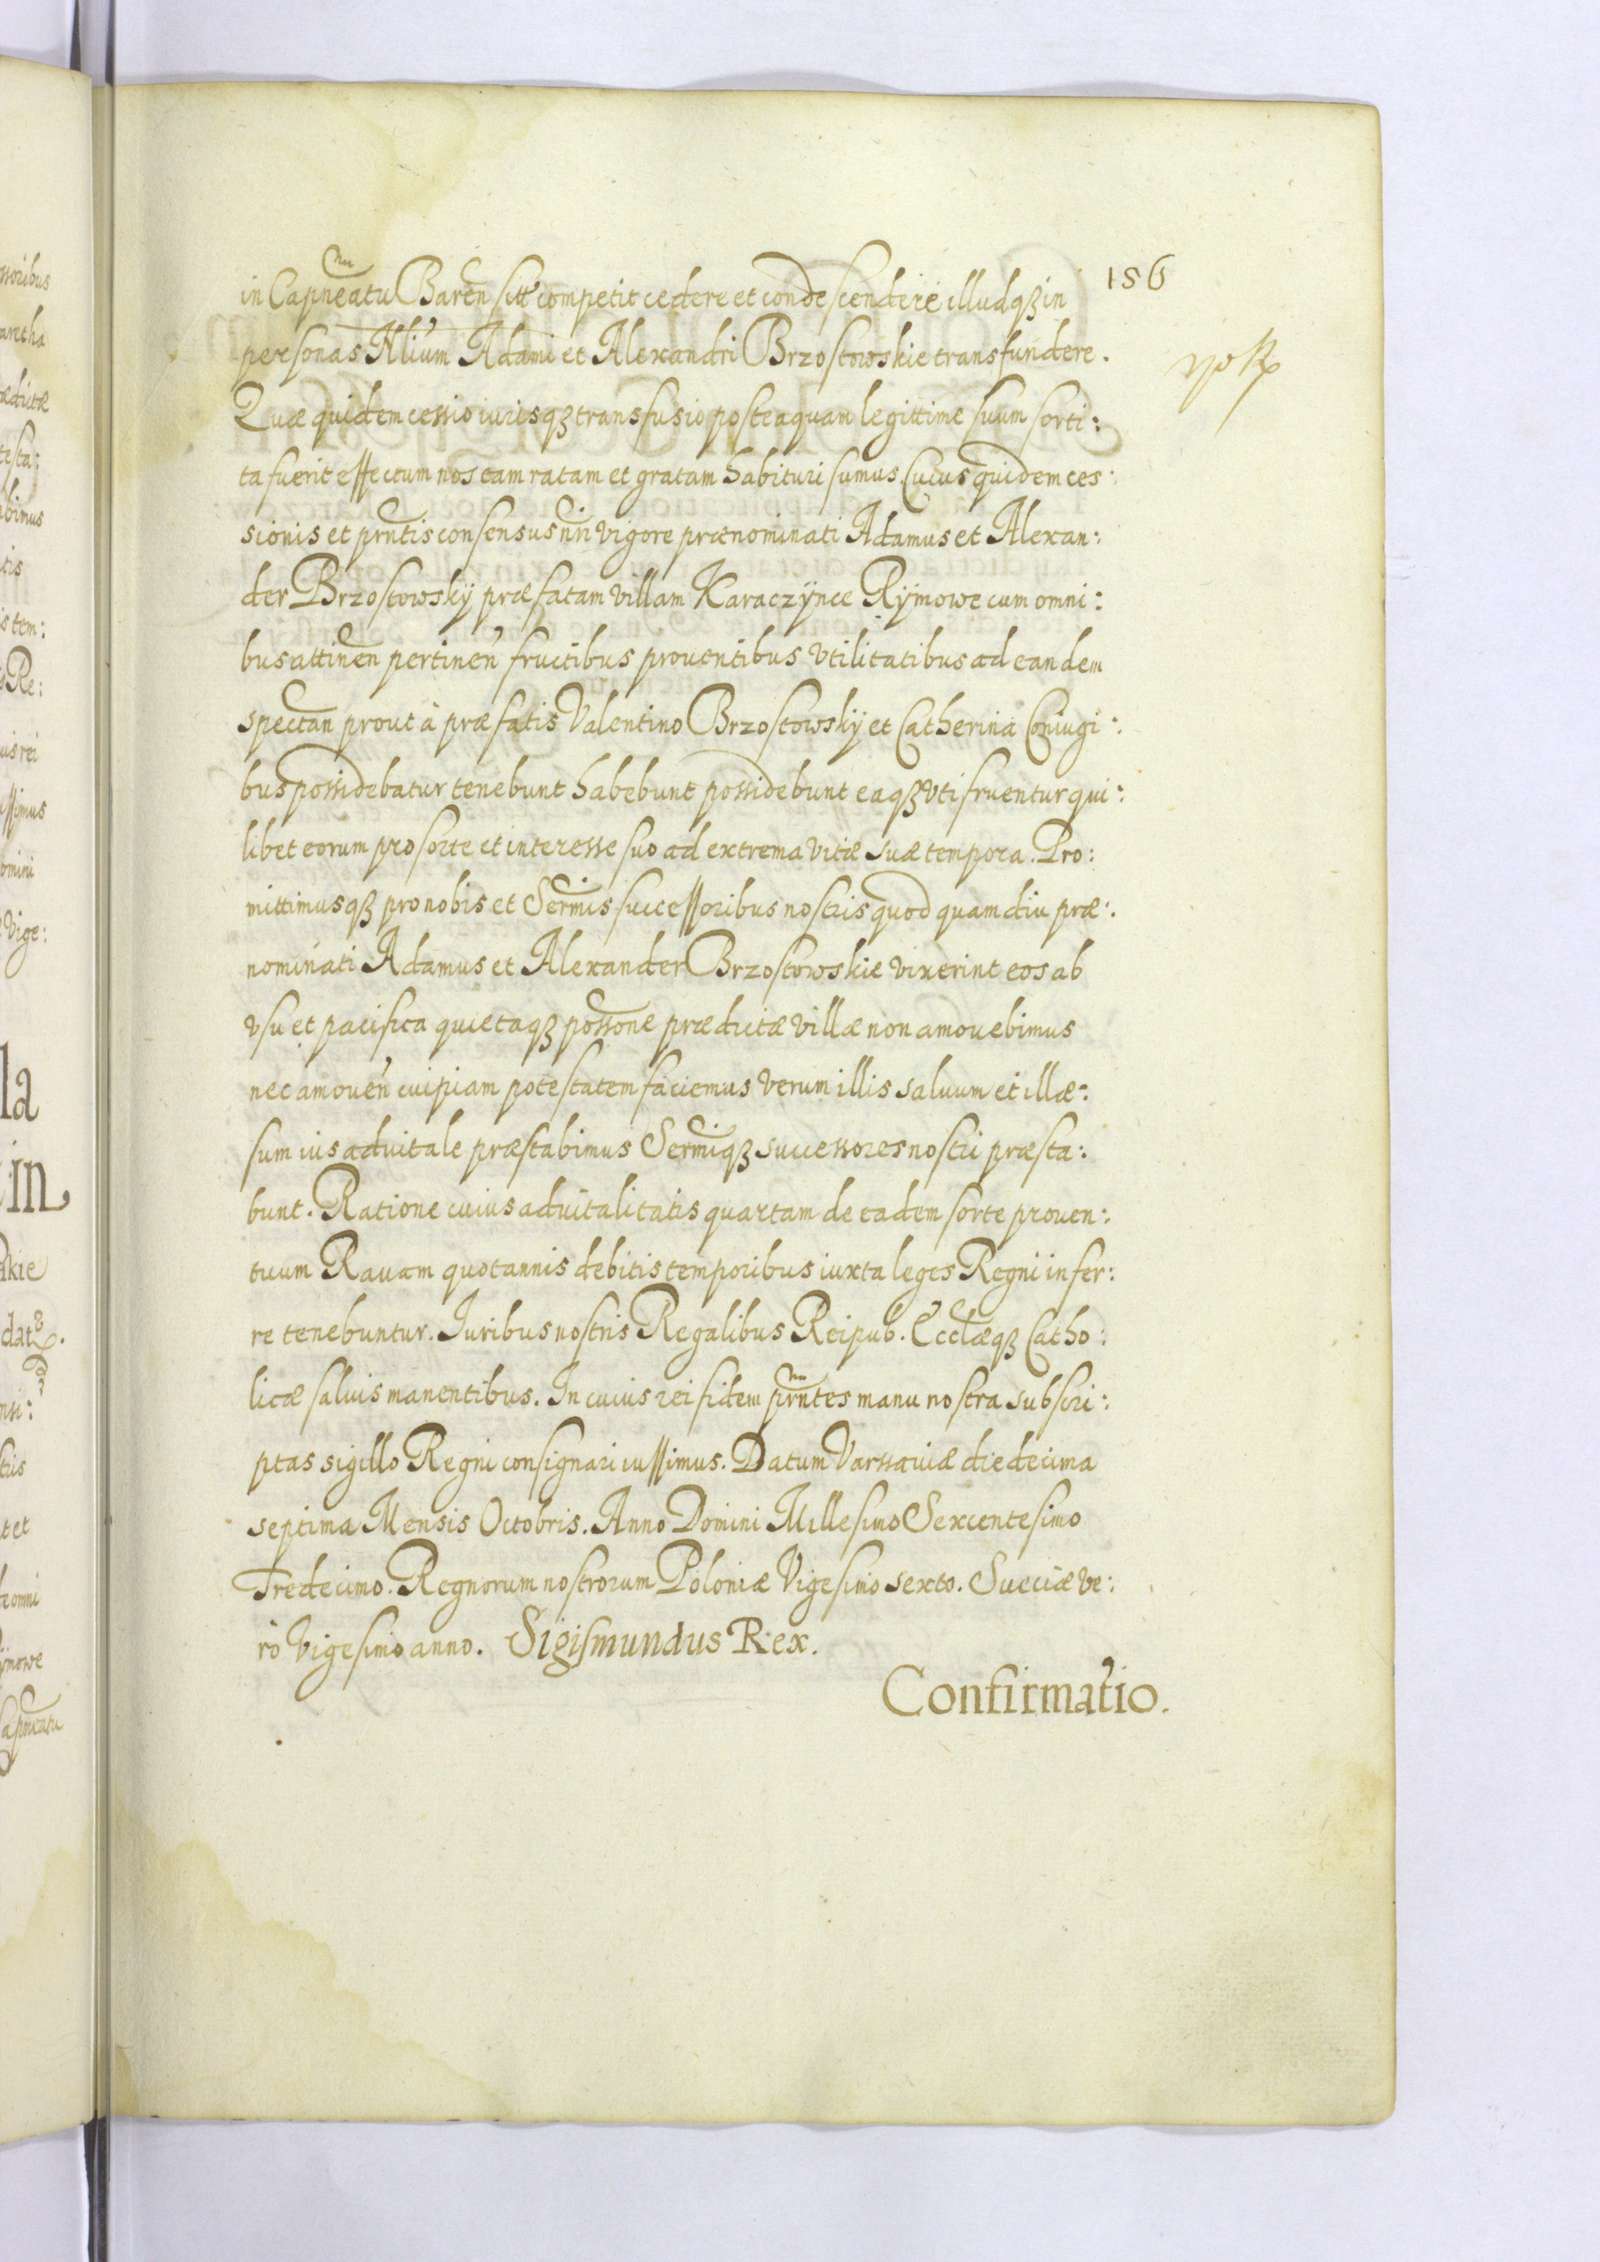 156
in Capneatu Baren sitt competit cedere et condescendere illudqꝫ in
personas Nlium Adami et Alexandri Brzostowskie transfundere.
Quæ quidem cessio iurisqꝫ transfusio posteaquam legittime suum sorti:
ta fuerit effectum nos eam ratam et gratam habituri sumus. Cuius quidem ces:
sionis et prntis consensus nri vigore prænominati Adamus et Alexan:
der Brzostowskÿ præfatam villam Karaczÿnce Rÿmowe cum omni:
bus attinen pertinen fructibus prouentibus vtilitatibus ad eandem
spectan prout à præfatis Valentino Brzostowskÿ et Catherina Coniugi:
bus possidebatur tenebunt habebunt possidebunt eaqꝫ vti fruentur qui:
libet eorum pro sorte et interesse suo ad extrema vitæ suæ tempora. Pro:
mittimusqꝫ pro nobis et Sermis successoribus nostris quod quamdiu præ:
nominati Adamus et Alexander Brzostowskie vixerint eos ab
vsu et pacifica quietaqꝫ possone prædictæ villæ non amouebimus
nec amouen cuipiam potestatem faciemus verum illis saluum et illæ:
sum ius aduitale præstabimus Sermiqꝫ successores nostri præsta:
bunt. Ratione cuius aduitalitatis quartam de eadem sorte prouen:
tuum Rauam quotannis debitis temporibus iuxta leges Regni infer:
re tenebuntur. Iuribus nostris Regalibus Reipub. Ecclæqꝫ Catho:
licæ saluis manentibus. In cuius rei fidem prntes manu nostra subscri:
ptas sigillo Regni consignari iussimus. Datum Varssauiæ die decima
septima Mensis Octobris. Anno Domini Millesimo Sexcentesimo
Tredecimo. Regnorum nostrorum Poloniæ Vigesimo sexto. Sueciæ ve:
rò Vigesimo anno. Sigismundus Rex.
Confirmatio.